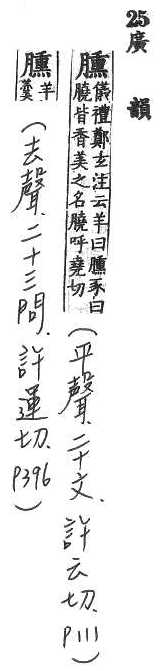 25廣韻
臐儀禮鄭玄注云羊曰臐豕曰
膮皆香美之名膮呼堯切
(平聲、二十文、許云切、P111)
臐羊
羹
(去聲、二十三問、許運切、P396)